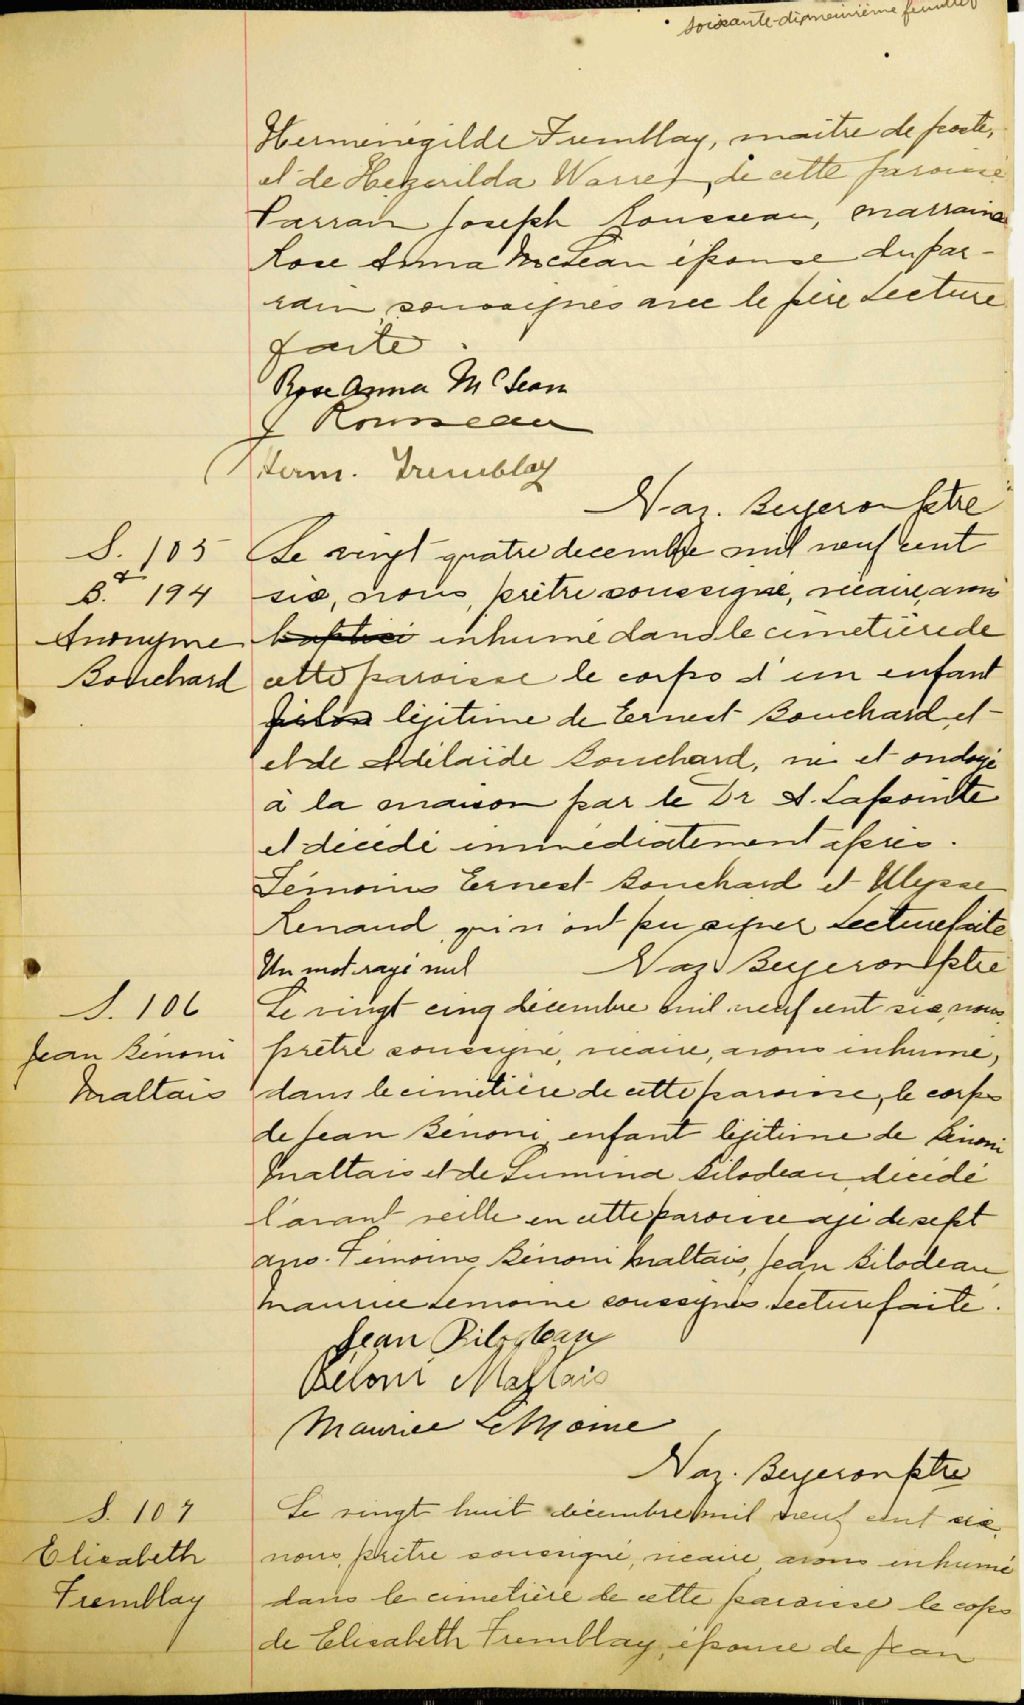 soixante-dixneuvième feuillet
Herménégilde Tremblay, maître de poste,
et de Hezerilda Warren, de cette paroisse
Parrain Joseph Rousseau, marraine
Rose Anna McLean épouse du par-
rain, soussignés avec le père Lecture
faite.
Rose Anna McLean
J Rousseau
Herm. Tremblay
Naz. Bergeron ptre
S. 105
& B. 194
Anonyme
Bouchard
Le vingt quatre decembre mil neuf cent
six, nous, prêtre soussigné, vicaire, avons
baptisé inhumé dans le cimetière de
cette paroisse le corps d'un enfant
légitime de Ernest Bouchard, et
et de Adélaïde Bouchard, né et ondoyé
à la maison par le Dr A. Lapointe
et décédé immédiatement après.
Témoins Ernest Bouchard et Ulysse
Renaud qui n'ont pu signer Lecture faite
Un mot rayé nul
Naz Bergeron ptre
S. 106
Jean Bénoni
Maltais
Le vingt cinq décembre mil neuf cent six, nous,
prêtre soussigné, vicaire, avons inhumé,
dans le cimetière de cette paroisse, le corps
de Jean Bénoni, enfant légitime de Bénoni
Maltais et de Lumina Bilodeau, décédé
l'avant veille en cette paroisse agé de sept
ans. Témoins, Bénoni Maltais, Jean Bilodeau,
Maurice Lemoine soussignés. Lecture faite.
Jean Bilodeau
Béloni Maltais
Maurice LeMoine
Naz. Bergeron ptre
S. 107
Elisabeth
Tremblay
Le vingt huit décembre mil neuf cent six,
nous, prêtre soussigné, vicaire, avons inhumé
dans le cimetière de cette paroisse le cops
de Elisabeth Tremblay, épouse de Jean